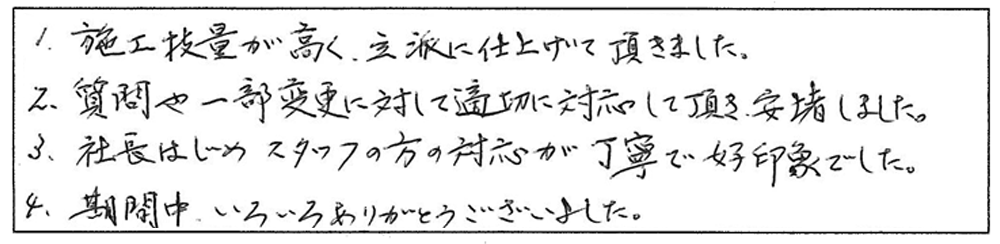 1. 施工技量が高く、立派に仕上げて頂きました。
2. 質問や一部変更に対して適切に対応して頂き、安堵しました。
3. 社長はじめスタッフの方の対応が丁寧で好印象でした。
4. 期間中、いろいろありがとうございました。